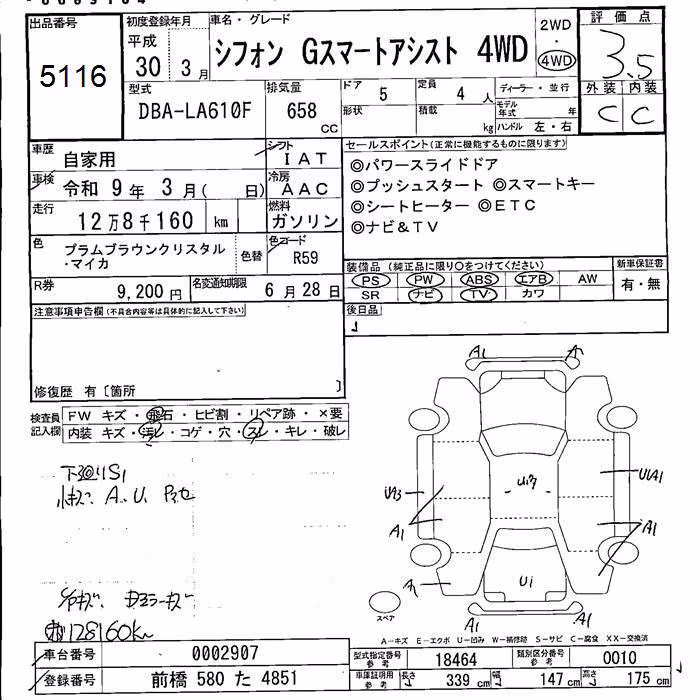 出品番号
5116
初度登録年月
平成
30 3月
車名・グレード
シフォン Gスマートアシスト 4WD
2WD
・
4WD
評価点
3.5
外装 内装
C C
型式
DBA-LA610F
排気量
658
cc
ドア
5
定員
4 人
ディーラー・並行
形状
積載
kg
モデル年式 年
ハンドル 左・右
車歴
自家用
シフト
IAT
車検
令和 9年 3月( 日)
冷房
AAC
走行
12万8千160 km
燃料
ガソリン
色
プラムブラウンクリスタル
・マイカ
色替
色コード
R59
R券
9,200円
名変通知期限
6月28日
セールスポイント(正常に機能するものに限ります)
◎パワースライドドア
◎プッシュスタート ◎スマートキー
◎シートヒーター ◎ETC
◎ナビ&TV
装備品 (純正品に限り○をつけてください)
新車保証書
PS PW ABS エアB AW
有・無
SR ナビ TV カワ
後日品
注意事項申告欄(不具合内容等は具体的に記入して下さい)
修復歴 有〔箇所 〕
検査員
記入欄
FW キズ・飛石・ヒビ割・リペア跡・×要
内装 キズ・汚レ・コゲ・穴・スレ・キレ・破レ
下廻りS1
A.U.
128160km
A1 A
UA3 A1 U1A1 A1
A U1
A1 A1
スペア
A-キズ E-エクボ U-凹み W-補修跡 S-サビ C-腐食 XX-交換済
車台番号
0002907
登録番号
前橋 580 た 4851
型式指定番号
参考
18464
類別区分番号
参考
0010
車庫証明用
参考
長さ 339 cm 幅 147 cm 高さ 175 cm